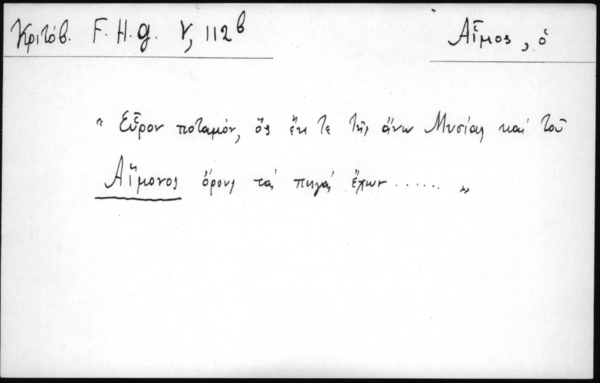 Κριτόβ. F. H. g. V, 112 b
Αἷμος, ὁ
" Εὗρον ποταμόν, ὃς ἔκ τε τῆς ἄνω Μυσίας καὶ τοῦ
Αἵμονος ὄρους τὰς πηγὰς ἔχων ...... "